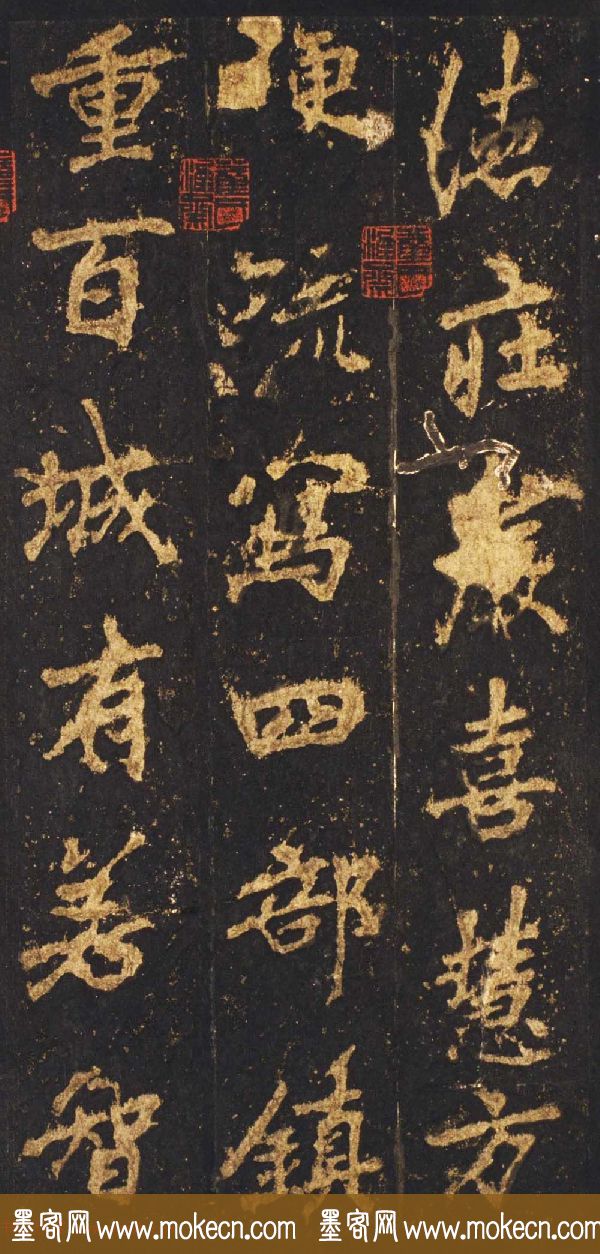 德莊嚴喜慧方
便流寫四部鎮
重百城有若智
墨客网 www.mokecn.com 墨客网 www.mokecn.com